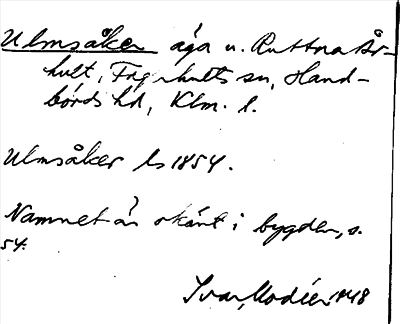 Ulmsåker äga u. Ruttna År-
hult, Fagerhults sn, Hand-
börds hd, Klm. l.
Ulmsåker ls 1854.
Namnet är okänt i bygden, s.
54.
Ivar Modéer 1948